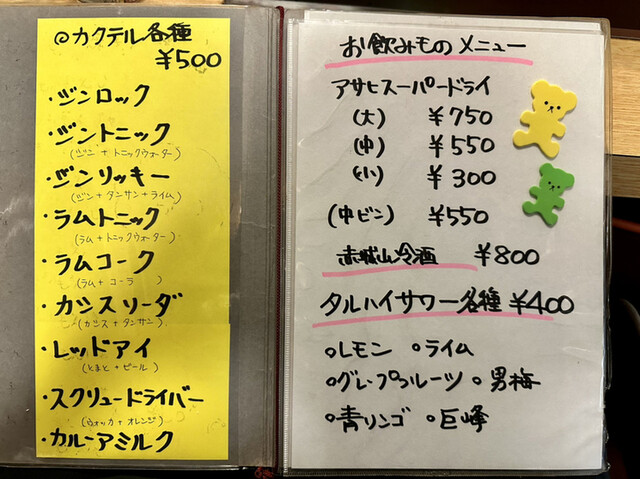 ◎カクテル各種
¥500
・ジンロック
・ジントニック
(ジン+トニックウォーター)
・ジンリッキー
(ジン+タンサン+ライム)
・ラムトニック
(ラム+トニックウォーター)
・ラムコーク
(ラム+コーラ)
・カシスソーダ
(カシス+タンサン)
・レッドアイ
(とまと+ビール)
・スクリュードライバー
(ウォッカ+オレンジ)
・カルーアミルク
お飲みものメニュー
アサヒスーパードライ
(大) ¥750
(中) ¥550
(小) ¥300
(中ビン) ¥550
赤城山冷酒 ¥800
タルハイサワー各種 ¥400
○レモン ○ライム
○グレープフルーツ ○男梅
○青リンゴ ○巨峰